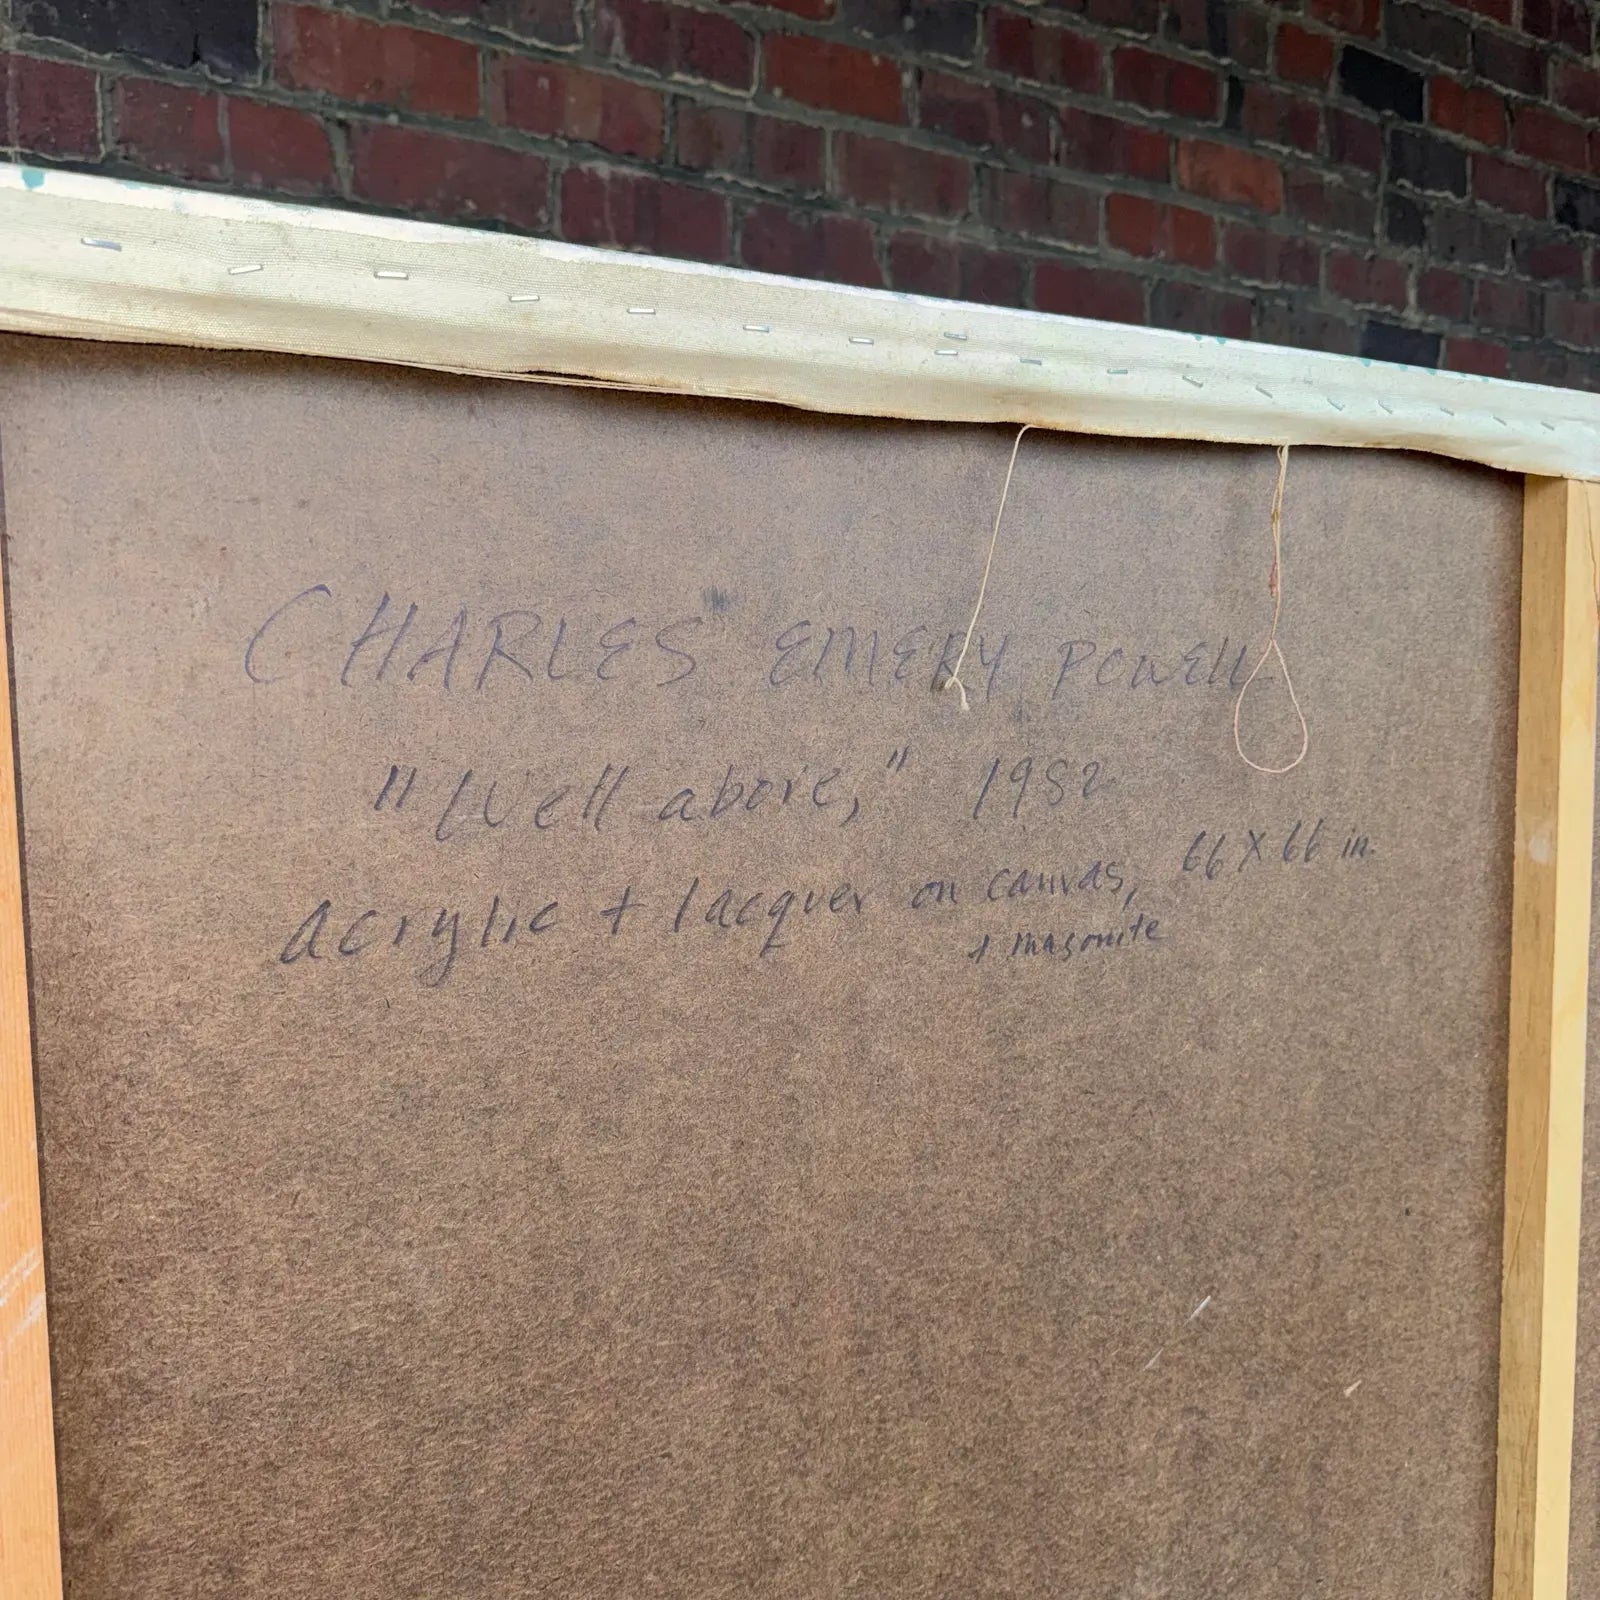 CHARLES EMERY POWELL
"Well above," 1982
acrylic + lacquer on canvas, 66 X 66 in.
+ masonite